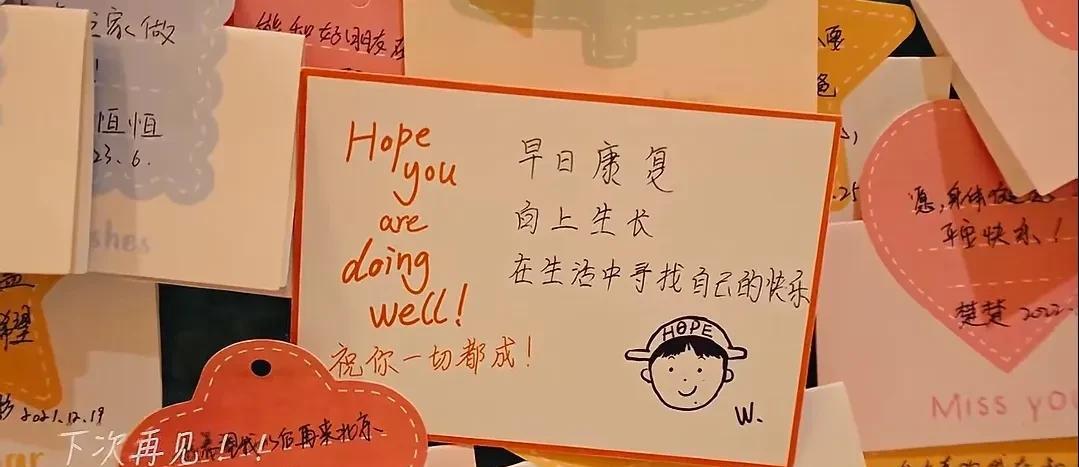 Hope
you
are
doing
well!
祝你一切都成！
早日康复
向上生长
在生活中寻找自己的快乐
HOPE
W.
家做
恒恒
23.6.
shes
能和好朋友在
愿,身体
平安快乐！
楚楚 2022.
Miss you
希望
2021.12.19
以后再来北京
下次再见!!!!